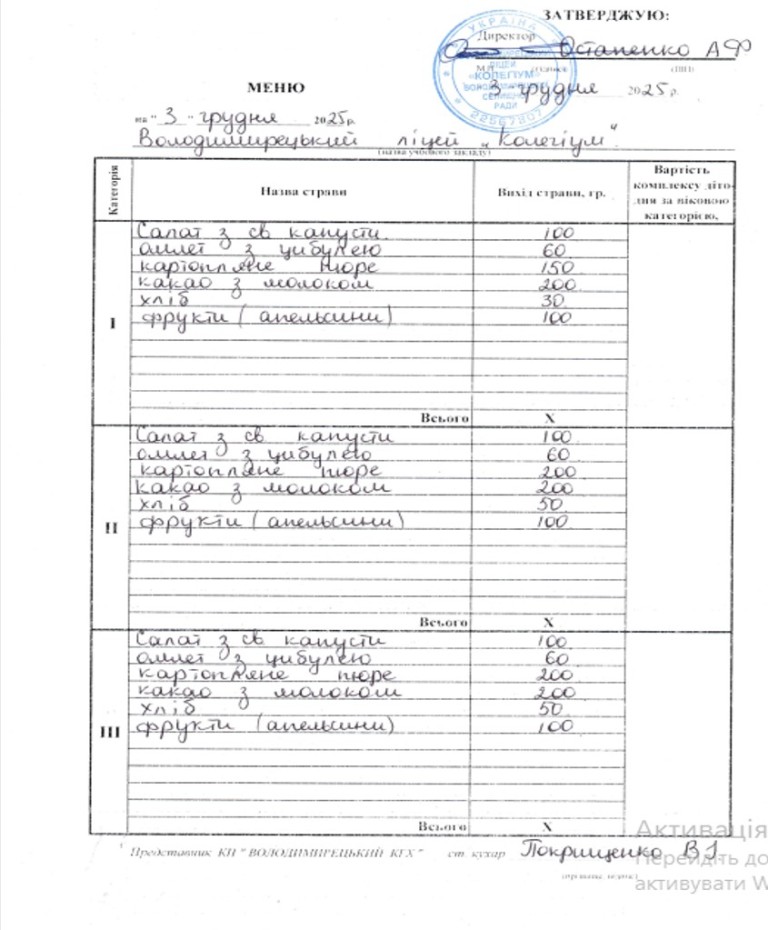 ЗАТВЕРДЖУЮ:
Директор
Остапенко А Ф
М.П. (підпис) (ПІП)
МЕНЮ
3 грудня 2025 р.
на " 3 " грудня 2025 р.
Володимирецький ліцей „Колегіум"
(назва учбового закладу)
УКРАЇНА
ЛІЦЕЙ
«КОЛЕГІУМ»
СЕЛИЩНОЇ
РАДИ
22567807
Категорія Назва страви Вихід страви, гр. Вартість комплексу діто-дня за віковою категорією,
Салат з св капусти 100
омлет з цибулею 60
картопляне пюре 150
какао з молоком 200
хліб 30
I фрукти ( апельсини) 100
Всього X
Салат з св капусти 100
омлет з цибулею 60
картопляне пюре 200
какао з молоком 200
хліб 50
II фрукти ( апельсини) 100
Всього X
Салат з св капусти 100
омлет з цибулею 60
картопляне пюре 200
какао з молоком 200
хліб 50
III фрукти (апельсини) 100
Всього X
Представник КП " ВОЛОДИМИРЕЦЬКИЙ КГХ " ст. кухар
Активація
Перейдіть до
активувати W